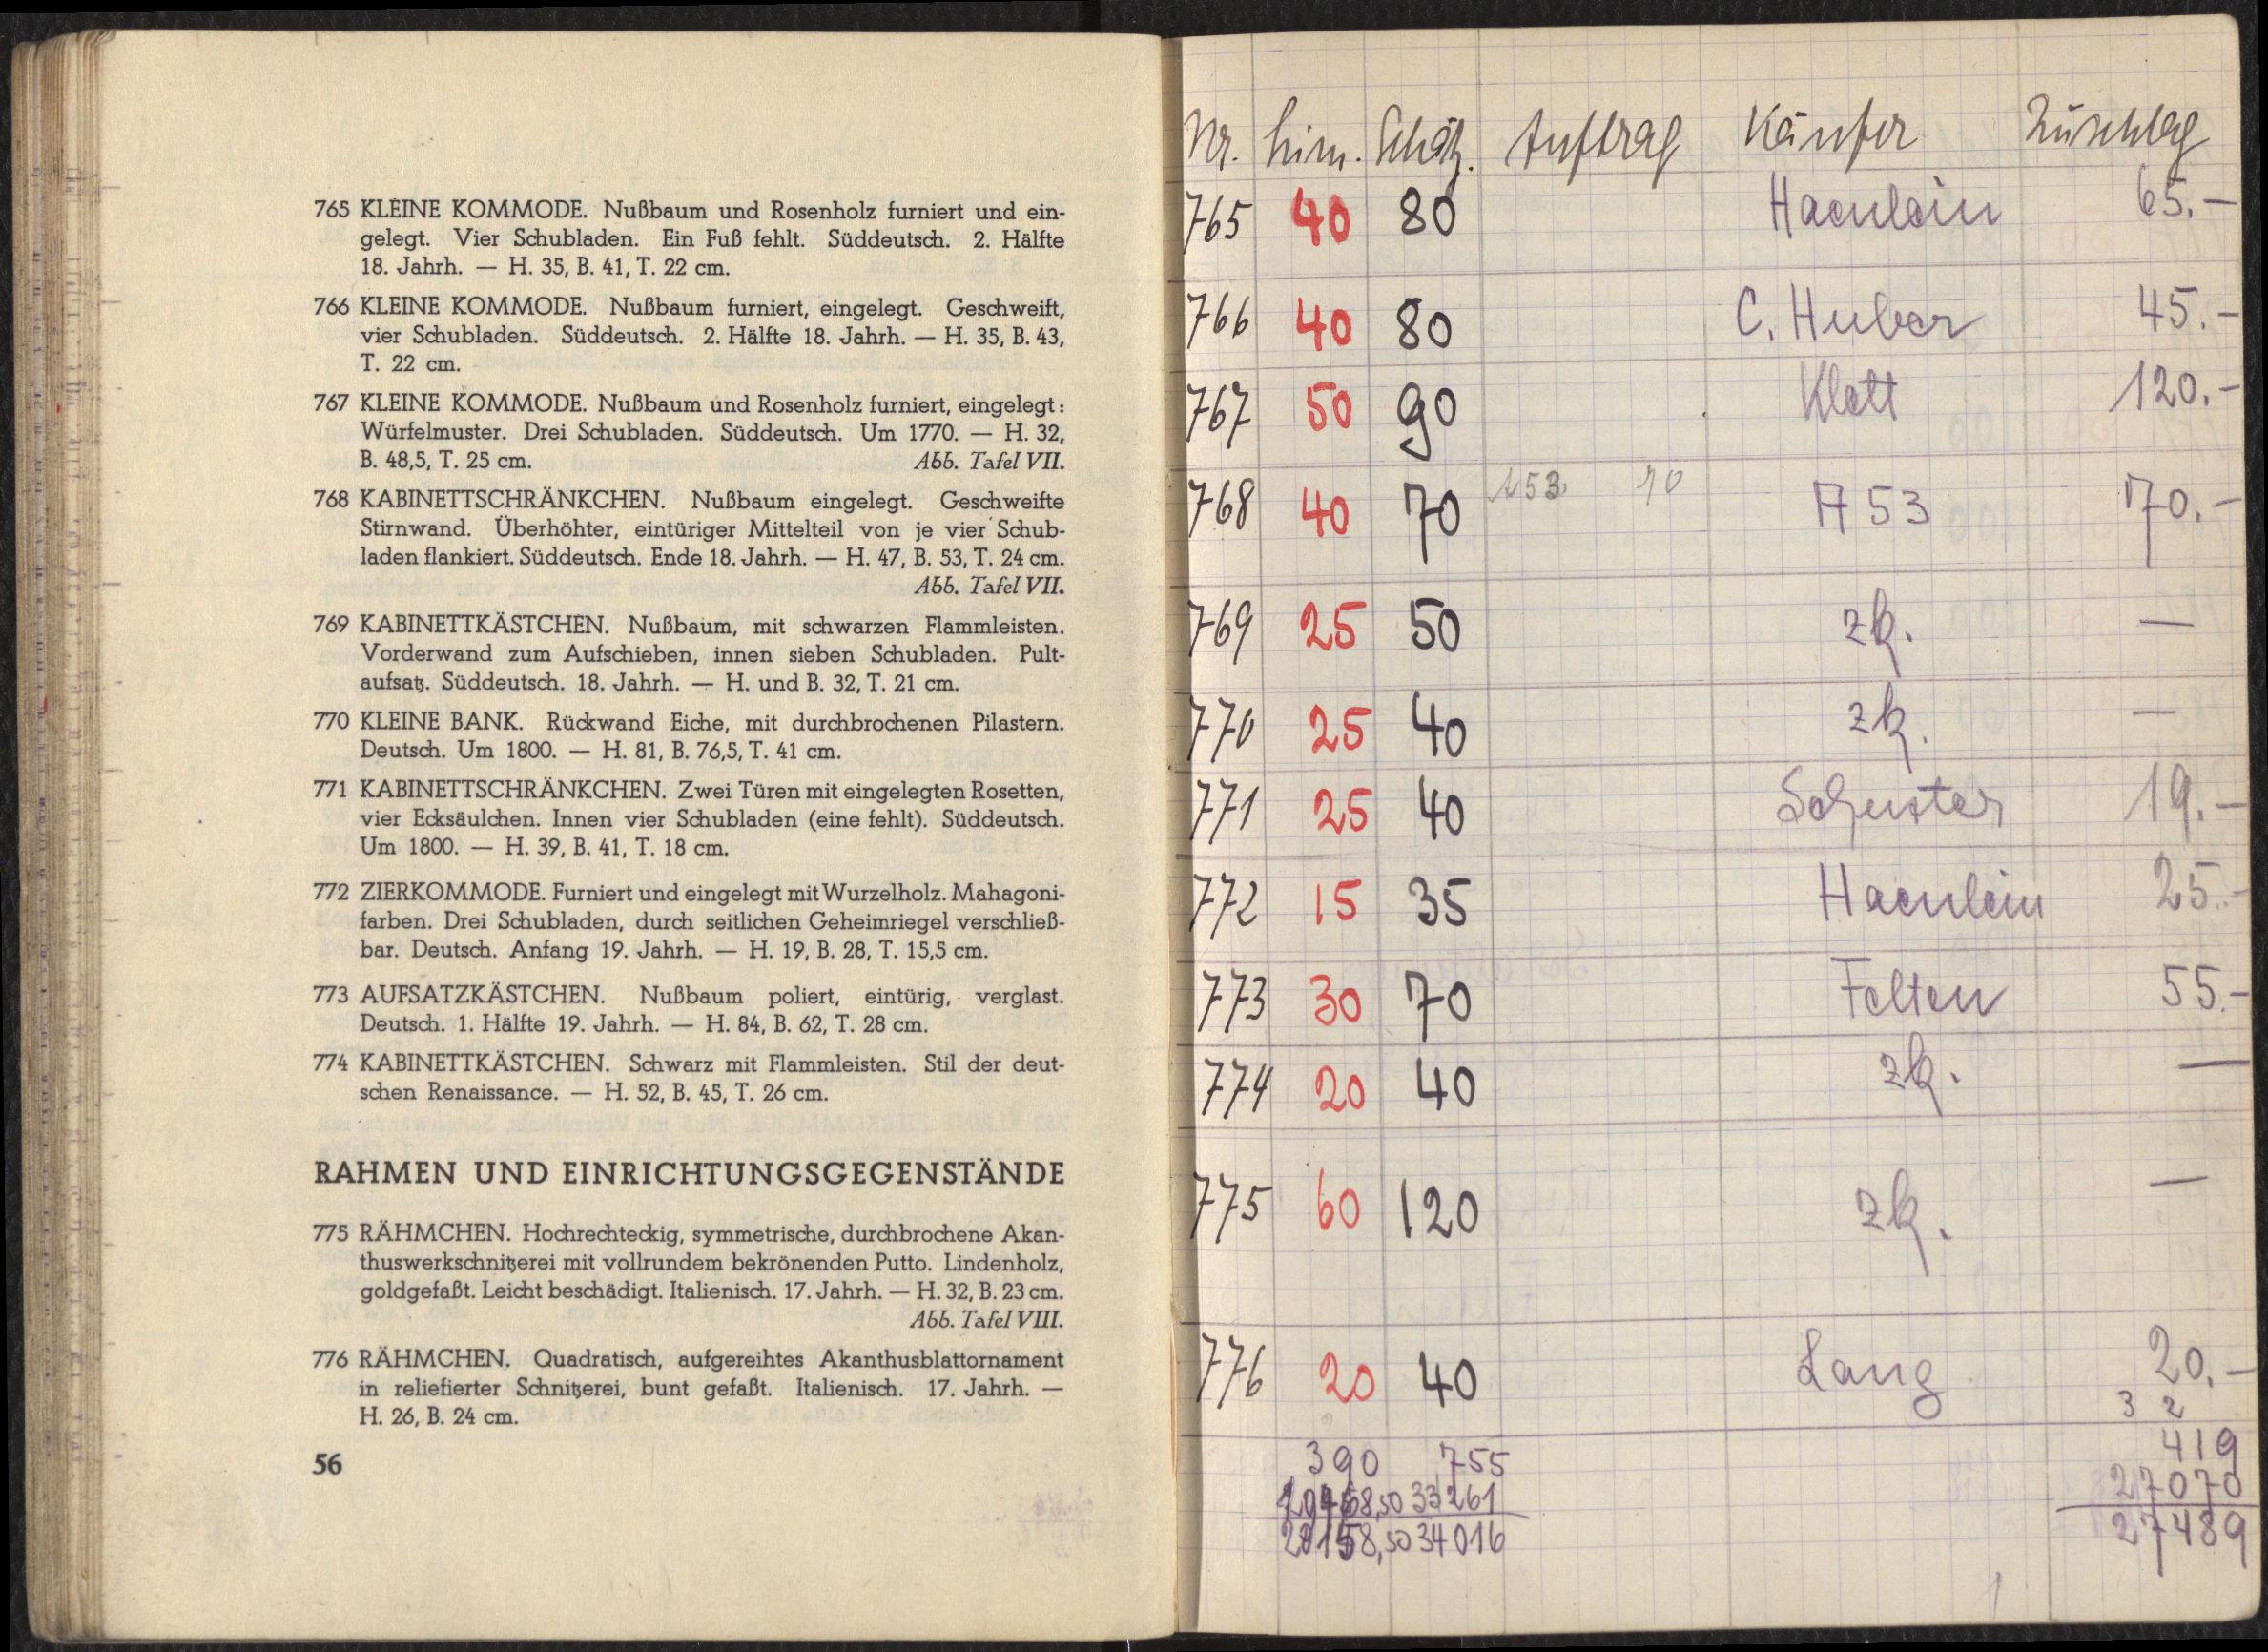 765 KLEINE KOMMODE. Nußbaum und Rosenholz furniert und ein-
gelegt. Vier Schubladen. Ein Fuß fehlt. Süddeutsch. 2. Hälfte
18. Jahrh. — H. 35, B. 41, T. 22 cm.
766 KLEINE KOMMODE. Nußbaum furniert, eingelegt. Geschweift,
vier Schubladen. Süddeutsch. 2. Hälfte 18. Jahrh. — H. 35, B. 43,
T. 22 cm.
767 KLEINE KOMMODE. Nußbaum und Rosenholz furniert, eingelegt:
Würfelmuster. Drei Schubladen. Süddeutsch. Um 1770. — H. 32,
B. 48,5, T. 25 cm. Abb. Tafel VII.
768 KABINETTSCHRÄNKCHEN. Nußbaum eingelegt. Geschweifte
Stirnwand. Überhöhter, eintüriger Mittelteil von je vier Schub-
laden flankiert. Süddeutsch. Ende 18. Jahrh. — H. 47, B. 53, T. 24 cm.
Abb. Tafel VII.
769 KABINETTKÄSTCHEN. Nußbaum, mit schwarzen Flammleisten.
Vorderwand zum Aufschieben, innen sieben Schubladen. Pult-
aufsatz. Süddeutsch. 18. Jahrh. — H. und B. 32, T. 21 cm.
770 KLEINE BANK. Rückwand Eiche, mit durchbrochenen Pilastern.
Deutsch. Um 1800. — H. 81, B. 76,5, T. 41 cm.
771 KABINETTSCHRÄNKCHEN. Zwei Türen mit eingelegten Rosetten,
vier Ecksäulchen. Innen vier Schubladen (eine fehlt). Süddeutsch.
Um 1800. — H. 39, B. 41, T. 18 cm.
772 ZIERKOMMODE. Furniert und eingelegt mit Wurzelholz. Mahagoni-
farben. Drei Schubladen, durch seitlichen Geheimriegel verschließ-
bar. Deutsch. Anfang 19. Jahrh. — H. 19, B. 28, T. 15,5 cm.
773 AUFSATZKÄSTCHEN. Nußbaum poliert, eintürig, verglast.
Deutsch. 1. Hälfte 19. Jahrh. — H. 84, B. 62, T. 28 cm.
774 KABINETTKÄSTCHEN. Schwarz mit Flammleisten. Stil der deut-
schen Renaissance. — H. 52, B. 45, T. 26 cm.
RAHMEN UND EINRICHTUNGSGEGENSTÄNDE
775 RÄHMCHEN. Hochrechteckig, symmetrische, durchbrochene Akan-
thuswerkschnitzerei mit vollrundem bekrönenden Putto. Lindenholz,
goldgefaßt. Leicht beschädigt. Italienisch. 17. Jahrh. — H. 32, B. 23 cm.
Abb. Tafel VIII.
776 RÄHMCHEN. Quadratisch, aufgereihtes Akanthusblattornament
in reliefierter Schnitzerei, bunt gefaßt. Italienisch. 17. Jahrh. —
H. 26, B. 24 cm.
56
Nr. Lim. Schätz. Auftrag Käufer Zuschlag
765 40 80 Haenlein 65.—
766 40 80 C. Huber 45.—
767 50 90 Klett 120.—
768 40 70 A53 70 A 53 70.—
769 25 50 zk. —
770 25 40 zk. —
771 25 40 Schuster 19.—
772 15 35 Haenlein 25.—
773 30 70 Felten 55.—
774 20 40 zk. —
775 60 120 zk. —
776 20 40 Lang 20.—
3 2
390 755 419
33261 27070
34016 27489